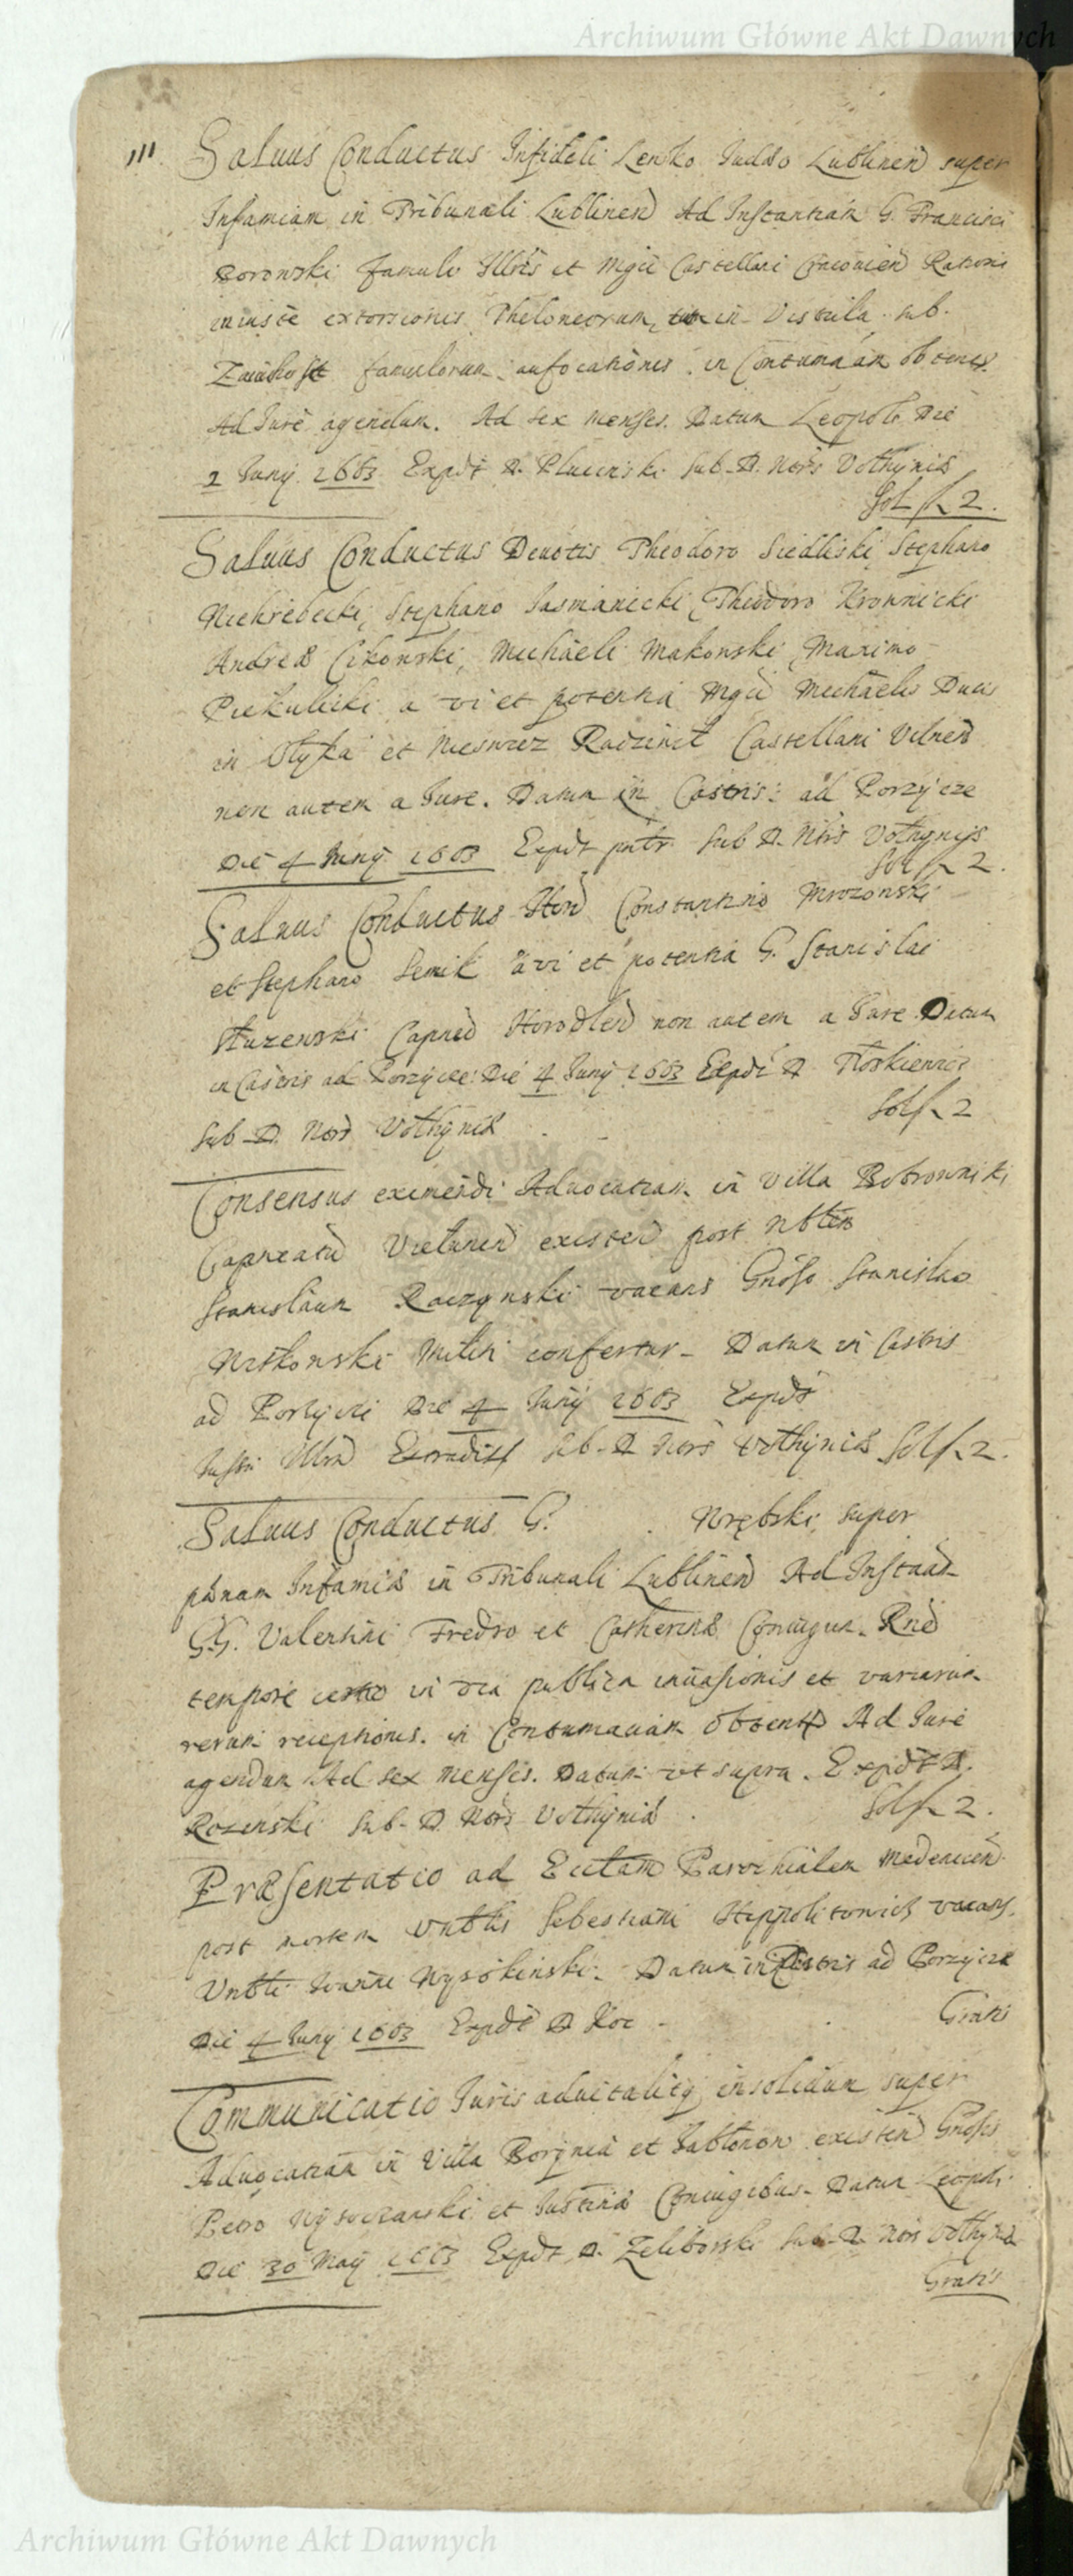 Archiwum Główne Akt Dawnych
111. Saluus Conductus Infideli Lenko Judæo Lublinen super
Infamiam in Tribunali Lublinen Ad Instantiam G. Francisci
Borowski famuli Illris et Mgci Castellani Cracouien Ratione
iniuste extorsionis Theloneorum, in Vistula sub
famulorum in Contumaciam obtent
Ad Jure agendum. Ad sex menses. Datum Leopoli Die
2 Juny 1663 Expdt D. Plucinski Sub D. Nors Volhyniæ
Sol f 2.
Saluus Conductus Deuotis Theodoro Siedliski, Stephano
Stephano Jasmanicki, Theodoro Krownicki
Andreæ Cikowski, Michaeli Makowski, Maximo
Piekulicki a vi et potentia Mgci Michaelis Ducis
in Olyka et Nieswiez Radziwil Castellani Vilnen
non autem a Jure. Datum in Castris ad Porzycze
Die 4 Juny 1663 Expdt Sub D. Nors Volhyniæ
Sol f 2.
Saluus Conductus Constantino Mrozowski
et Stephano Semik a vi et potentia G. Stanislai
Capnei Horodlen non autem a Jure Datum
in Castris ad Porzycze Die 4 Juny 1663 Expdt D
Sol f 2
Sub D. Nors Volhyniæ
Consensus eximendi Aduocatiam in Villa Bobrowniki
Capneatu Vielunen existen post
Stanislaum Raczynski vacans Gnoso Stanislao
Militi confertur Datum in Castris
ad Porzycze Die 4 Juny 1663 Expdt
Sub D Nors Volhyniæ Sol f 2.
Saluus Conductus G. super
pænam Infamiæ in Tribunali Lublinen Ad Instan
GG. Valentini Fredro et Catherinæ Coniugum. Rne
tempore certo in via publica inuasionis et variarum
rerum receptionis in Contumaciam obtent Ad Jure
agendum Ad sex menses. Datum vt supra. Expdt D.
Sub D. Nors Volhyniæ Sol f 2.
Præsentatio ad Ecclam Parochialem Medenicen
post mortem Vnblis Sebestiani Hippolitowicz vacans.
Vnbli Joanni Wysokinski. Datum in Castris ad Porzycze
Die 4 Juny 1663 Expdt D Koc Gratis
Communicatio Juris aduitalitii insolidum super
Aduocatiam in Villa Borynia et Jablonow existen Gnosis
Petro Wysoczanski et Justinæ Coniugibus. Datum Leopoli
Die 30 May 1663 Expdt D. Zeliborski Sub D Nors Volhyniæ
Gratis
Archiwum Główne Akt Dawnych